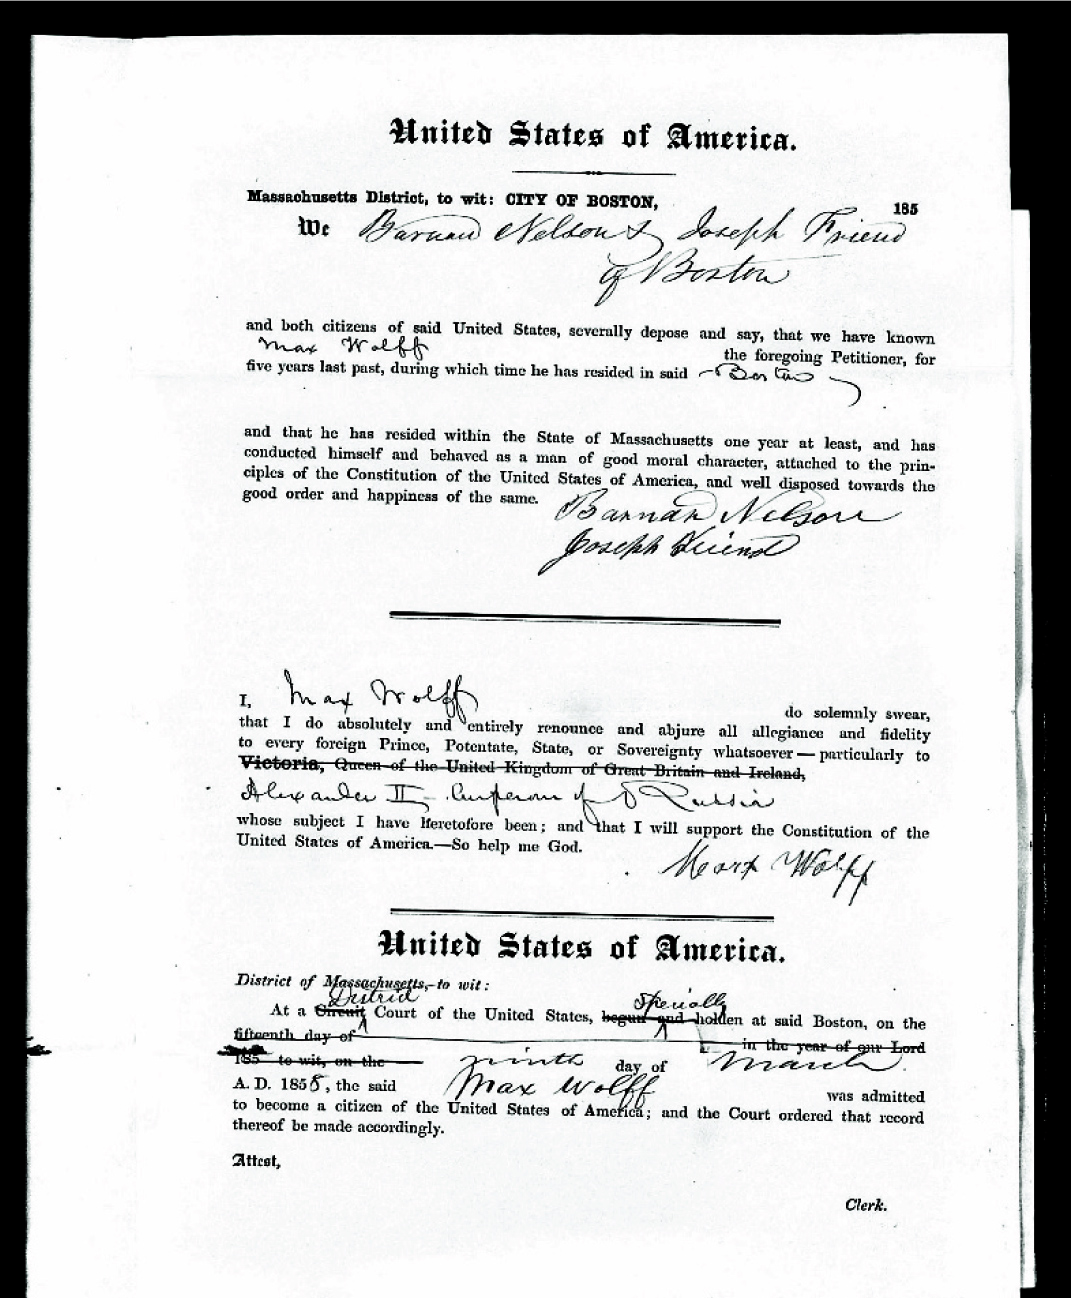 United States of America.
Massachusetts District, to wit: CITY OF BOSTON, 185
We Barnard Nelson & Joseph Friend
of Boston
and both citizens of said United States, severally depose and say, that we have known
Max Wolff the foregoing Petitioner, for
five years last past, during which time he has resided in said Boston
and that he has resided within the State of Massachusetts one year at least, and has
conducted himself and behaved as a man of good moral character, attached to the prin-
ciples of the Constitution of the United States of America, and well disposed towards the
good order and happiness of the same.
Nelson
Joseph Friend
I, Max Wolff do solemnly swear,
that I do absolutely and entirely renounce and abjure all allegiance and fidelity
to every foreign Prince, Potentate, State, or Sovereignty whatsoever — particularly to
Victoria, Queen of the United Kingdom of Great Britain and Ireland,
Alexander II Emperor of Russia
whose subject I have heretofore been; and that I will support the Constitution of the
United States of America.—So help me God.
Marx Wolff
United States of America.
District of Massachusetts,—to wit:
District Specially
At a Circuit Court of the United States, begun and holden at said Boston, on the
fifteenth day of in the year of our Lord
185 to wit, on the ninth day of March
A. D. 1858, the said Max Wolff was admitted
to become a citizen of the United States of America; and the Court ordered that record
thereof be made accordingly.
Attest,
Clerk.